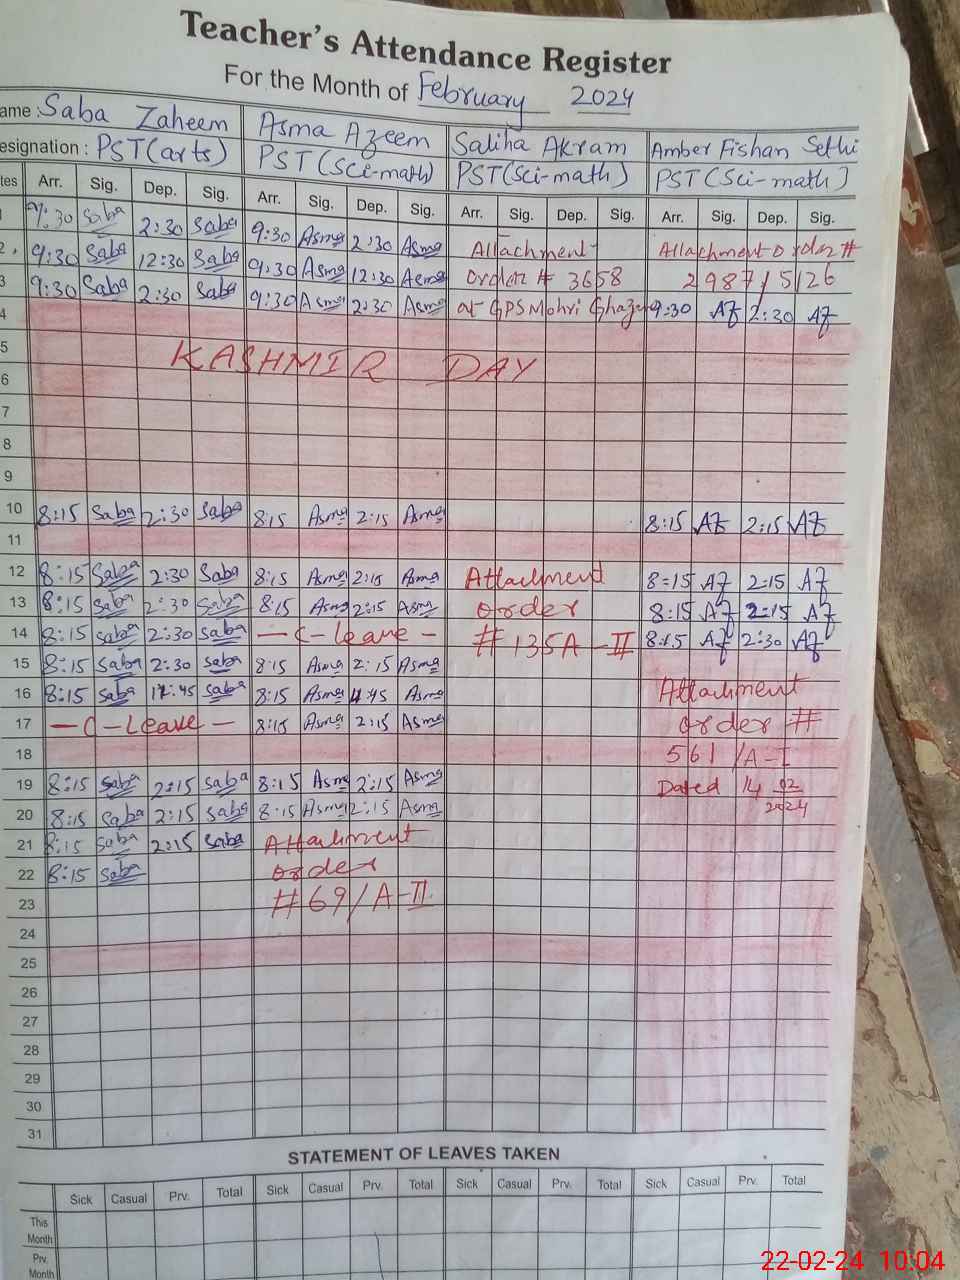 Teacher's Attendance Register
For the Month of February 2024
ame : Saba Zaheem Asma Azeem Saliha Akram Amber Fishan Sethi
esignation : PST(arts) PST(sci-math) PST(sci-math) PST(sci-math)
tes Arr. Sig. Dep. Sig. Arr. Sig. Dep. Sig. Arr. Sig. Dep. Sig. Arr. Sig. Dep. Sig.
1 9:30 Saba 2:30 Saba 9:30 Asma 2:30 Asma Attachment Attachment Order #
2 9:30 Saba 12:30 Saba 9:30 Asma 12:30 Asma order # 3658 2987/5126
3 9:30 Saba 2:30 Saba 9:30 Asma 2:30 Asma at GPS Mohri 9:30 AF 2:30 AF
4
5 KASHMIR DAY
6
7
8
9
10 8:15 Saba 2:30 Saba 8:15 Asma 2:15 Asma 8:15 AF 2:15 AF
11
12 8:15 Saba 2:30 Saba 8:15 Asma 2:15 Asma Attachment 8:15 AF 2:15 AF
13 8:15 Saba 2:30 Saba 8:15 Asma 2:15 Asma order 8:15 AF 2:15 AF
14 8:15 Saba 2:30 Saba - C-leave - # 135A-II 8:15 AF 2:30 AF
15 8:15 Saba 2:30 Saba 8:15 Asma 2:15 Asma
16 8:15 Saba 12:45 Saba 8:15 Asma :45 Asma Attachment
17 - C-Leave - 8:15 Asma 2:15 Asma order #
18 561/A-I
19 8:15 Saba 2:15 Saba 8:15 Asma 2:15 Asma Dated 14 02 2024
20 8:15 Saba 2:15 Saba 8:15 Asma 2:15 Asma
21 8:15 Saba 2:15 Saba Attachment
22 8:15 Saba order
23 #69/A-II
24
25
26
27
28
29
30
31
STATEMENT OF LEAVES TAKEN
Sick Casual Prv. Total Sick Casual Prv. Total Sick Casual Prv. Total Sick Casual Prv. Total
This Month
Prv. Month
22-02-24 10:04